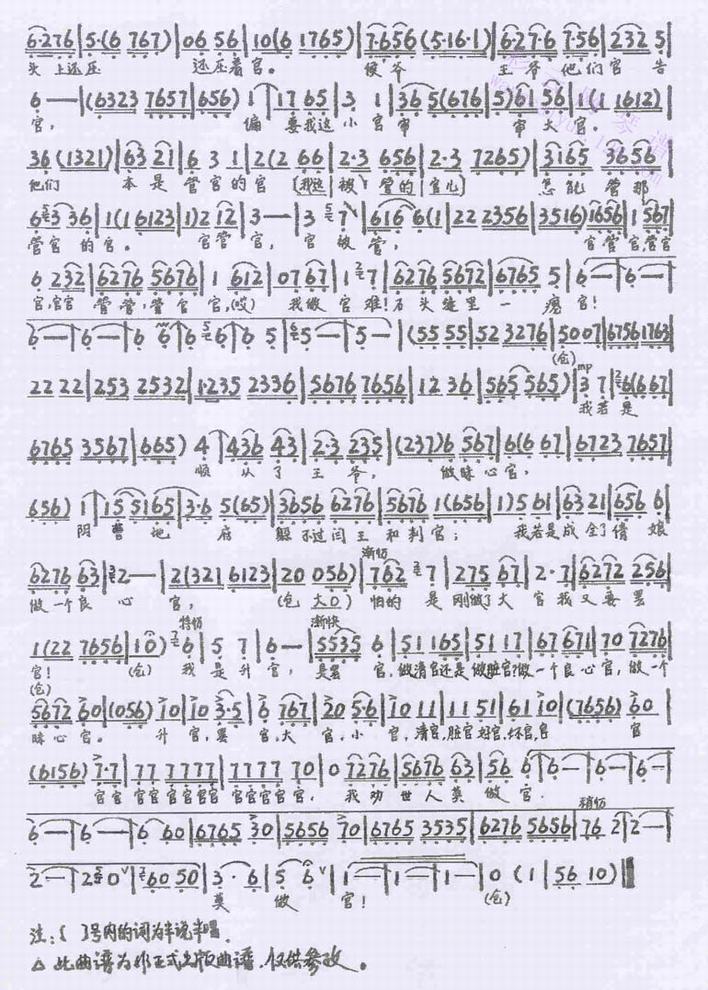 6·276 | 5·(6 767) | 06 56 | 10(6 1765) | 7·656 (5·16·1) | 6·27·6 7·56 | 232 5 |
头上还压 还压着官。 侯爷 王爷他们官告
6 — | (6323 7657 | 656) 1 | 17 65 | 3 1 | 36 5(676 | 5)61 56 | 1(1 1612) |
官, 偏 要我这小官审 审大官。
36 (1321) | 63 21 | 6 3 1 | 2(2 66 | 2·3 656 | 2·3 7265) | 3165 3656 |
他们 本是管官的官 〔我这 被 管的 官儿〕 怎能管那
6 3 36 | 1(1 6123 | 1)2 12 | 3 — | 3 7 | 616 6(1 | 22 2356 | 3516)1656 | 1 567 |
管官的官。 官管官, 官被管, 官管官管官
6 232 | 6276 5676 | 1 612 | 07 67 | 1 7 | 6276 5672 | 6765 5 | 6 — | 6 — |
官,官官 管管,管官官,(哎) 我做官难!石头缝里一 官!
6 — | 6 — | 6 6 | 6 6 | 6 5 | 5 — | 5 — | (55 55 | 52 3276 | 5007 | 67561763 |
(仓)
22 22 | 253 2532 | 1·235 2336 | 5676 7656 | 12 36 | 565 565) | 3 7 | 6(6 67 |
mp
我若是
6765 3567 | 665) 4 | 436 43 | 2·3 235 | (237)6 567 | 6(6 67 | 6723 7657 |
顺从了王爷, 做昧心官,
656) 1 | 15 5165 | 3·6 5(65) | 3656 6276 | 5676 1(656 | 1)5 61 | 63 21 | 656 6 |
阴曹地府 躲不过闫王和判官; 我若是成全了倩娘
6276 63 | 2 — | 2(321 6123 | 20 056) | 762 7 | 275 67 | 2·7 | 6272 256 |
渐切
做一个良心官, (仓 大〇) 怕的是刚做了大官我又要罢
1(22 7656 | 10) 6 | 5 7 | 6 — | 5535 6 | 51 165 | 51 17 | 67 671 | 70 7276 |
特切 渐快
官! (仓) 我是升官, 是罢官.做清官还是做脏官?做一个良心官,做一个
(仓)
5672 60 | (056) 10 | 10 3·5 | 6 767 | 20 5·6 | 10 11 | 11 51 | 61 10 | (7656) 60 |
昧心官。 升官,罢官,大官,小官,清官,脏官 官,坏官,官 官
(6156) 7·7 | 77 7777 | 7777 70 | 0 7276 | 5676 63 | 56 6 | 6 — | 6 — | 6 — |
官官官官官官官官官官官官官, 我劝世人莫做官.
稍切
6 — | 6 — | 6 60 | 6765 30 | 5656 70 | 6765 3535 | 6276 5656 | 76 2 | 2 — |
2 — | 2 0 | 60 50 | 3 · 6 | 5 6 | 1 — | 1 — | 1 — | 0 (1 | 56 10) ‖
莫做官! (仓)
注:〔 〕号内的词为半说半唱.
△此曲谱为非正式出版曲谱.仅供参改。